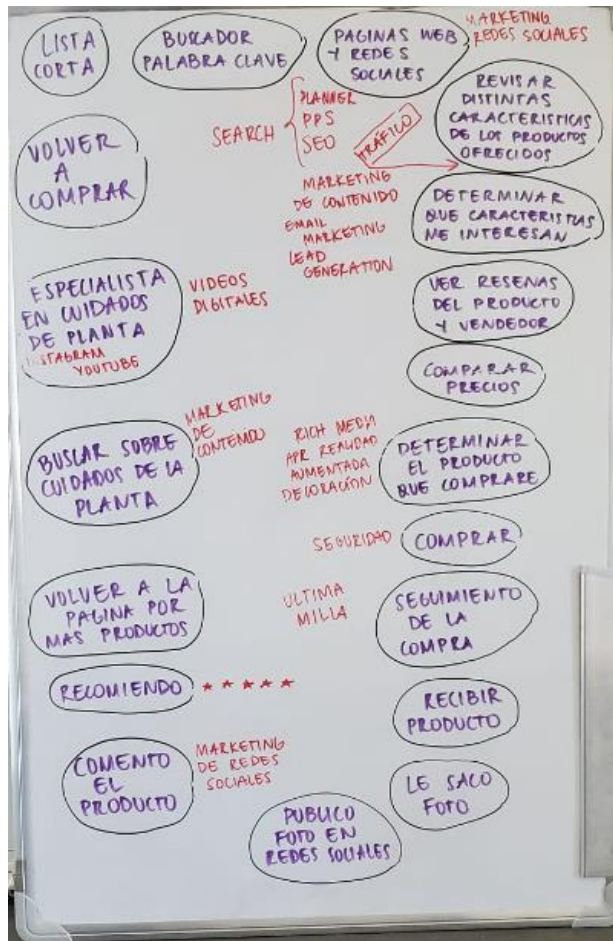 LISTA
CORTA
BUSCADOR
PALABRA CLAVE
PAGINAS WEB
Y REDES
SOCIALES
MARKETING
REDES SOCIALES
SEARCH
PLANNER
PPS
SEO
TRÁFICO
REVISAR
DISTINTAS
CARACTERISTICAS
DE LOS PRODUCTOS
OFRECIDOS
VOLVER
A
COMPRAR
MARKETING
DE CONTENIDO
EMAIL
MARKETING
LEAD
GENERATION
DETERMINAR
QUE CARACTERISTICAS
ME INTERESAN
ESPECIALISTA
EN CUIDADOS
DE PLANTA
INSTAGRAM
YOUTUBE
VIDEOS
DIGITALES
VER RESENAS
DEL PRODUCTO
Y VENDEDOR
COMPARAR
PRECIOS
BUSCAR SOBRE
CUIDADOS DE LA
PLANTA
MARKETING
DE
CONTENIDO
RICH MEDIA
APR REALIDAD
AUMENTADA
DECORACIÓN
DETERMINAR
EL PRODUCTO
QUE COMPRARE
SEGURIDAD
COMPRAR
VOLVER A LA
PAGINA POR
MAS PRODUCTOS
ULTIMA
MILLA
SEGUIMIENTO
DE LA
COMPRA
RECOMIENDO
★ ★ ★ ★ ★
RECIBIR
PRODUCTO
COMENTO
EL
PRODUCTO
MARKETING
DE REDES
SOCIALES
LE SACO
FOTO
PUBLICO
FOTO EN
REDES SOCIALES